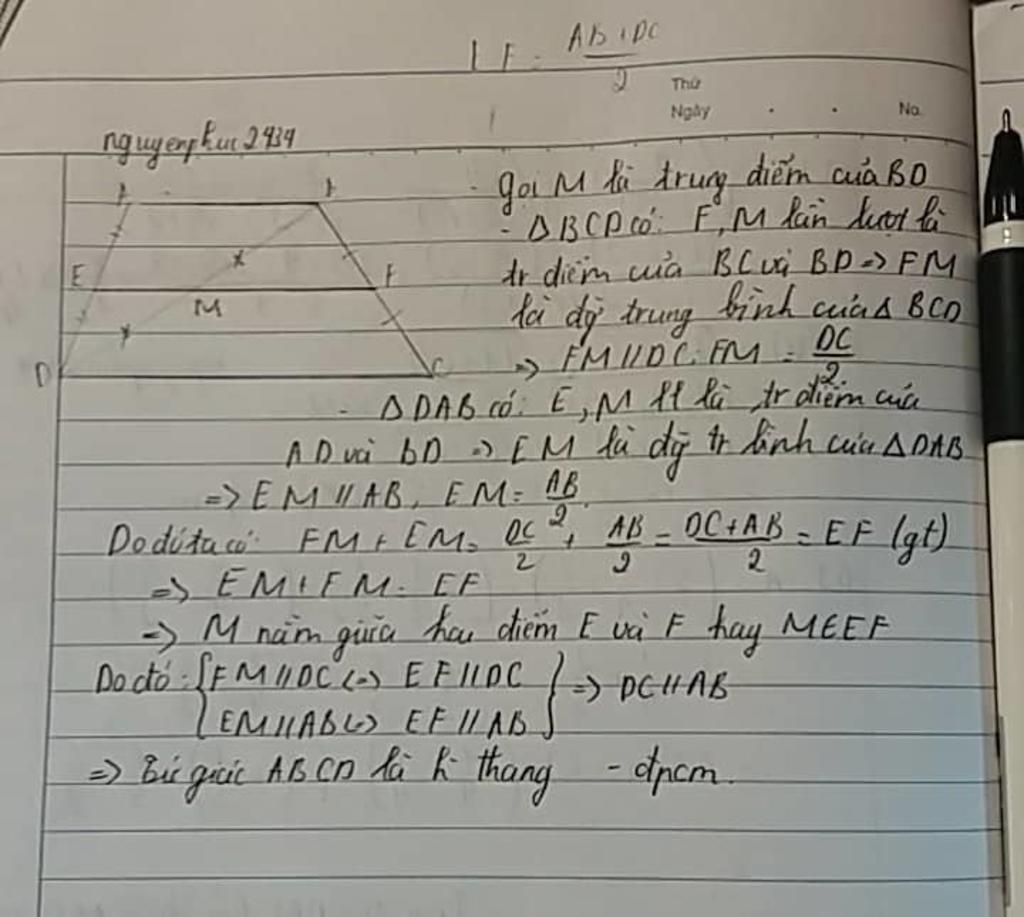 EF = AB + DC / 2
Thứ
Ngày . . No.
nguyenphuc2434
E
F
M
D
C
- gọi M là trung điểm của BD
- ΔBCD có: F, M lần lượt là
tr điểm của BC và BD => FM
là đg̀ trung bình của Δ BCD
=> FM // DC; FM = DC/2
- ΔDAB có: E, M ll là tr điểm của
AD và BD => EM là đg̀ tr bình của ΔDAB
=> EM // AB, EM = AB/2
Do đó ta có: FM + EM = DC/2 + AB/2 = DC+AB/2 = EF (gt)
=> EM + FM = EF
=> M nằm giữa hai điểm E và F hay M∈EF
Do đó: { FM // DC <=> EF // DC
EM // AB <=> EF // AB } => DC // AB
=> Tứ giác ABCD là h thang - đpcm.